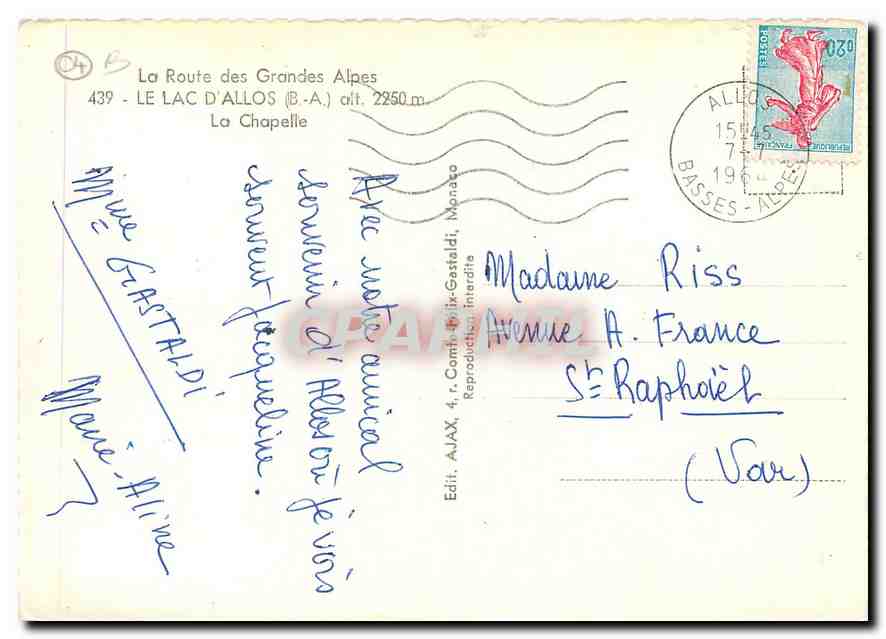 C4
La Route des Grandes Alpes
439 - LE LAC D'ALLOS (B.-A.) alt. 2250 m.
La Chapelle
Avec notre amical
souvenir d'Allos où je vois
souvent Jacqueline.
Mme GASTALDI
Marie-Aline
Edit. AJAX, 4, r. Comte-Félix-Gastaldi, Monaco
Reproduction interdite
0,20
POSTES
REPUBLIQUE FRANÇAISE
ALLOS
15H45
7-7
196
BASSES-ALPES
Madame Riss
Avenue A. France
St Raphaël
(Var)
CPARAMA